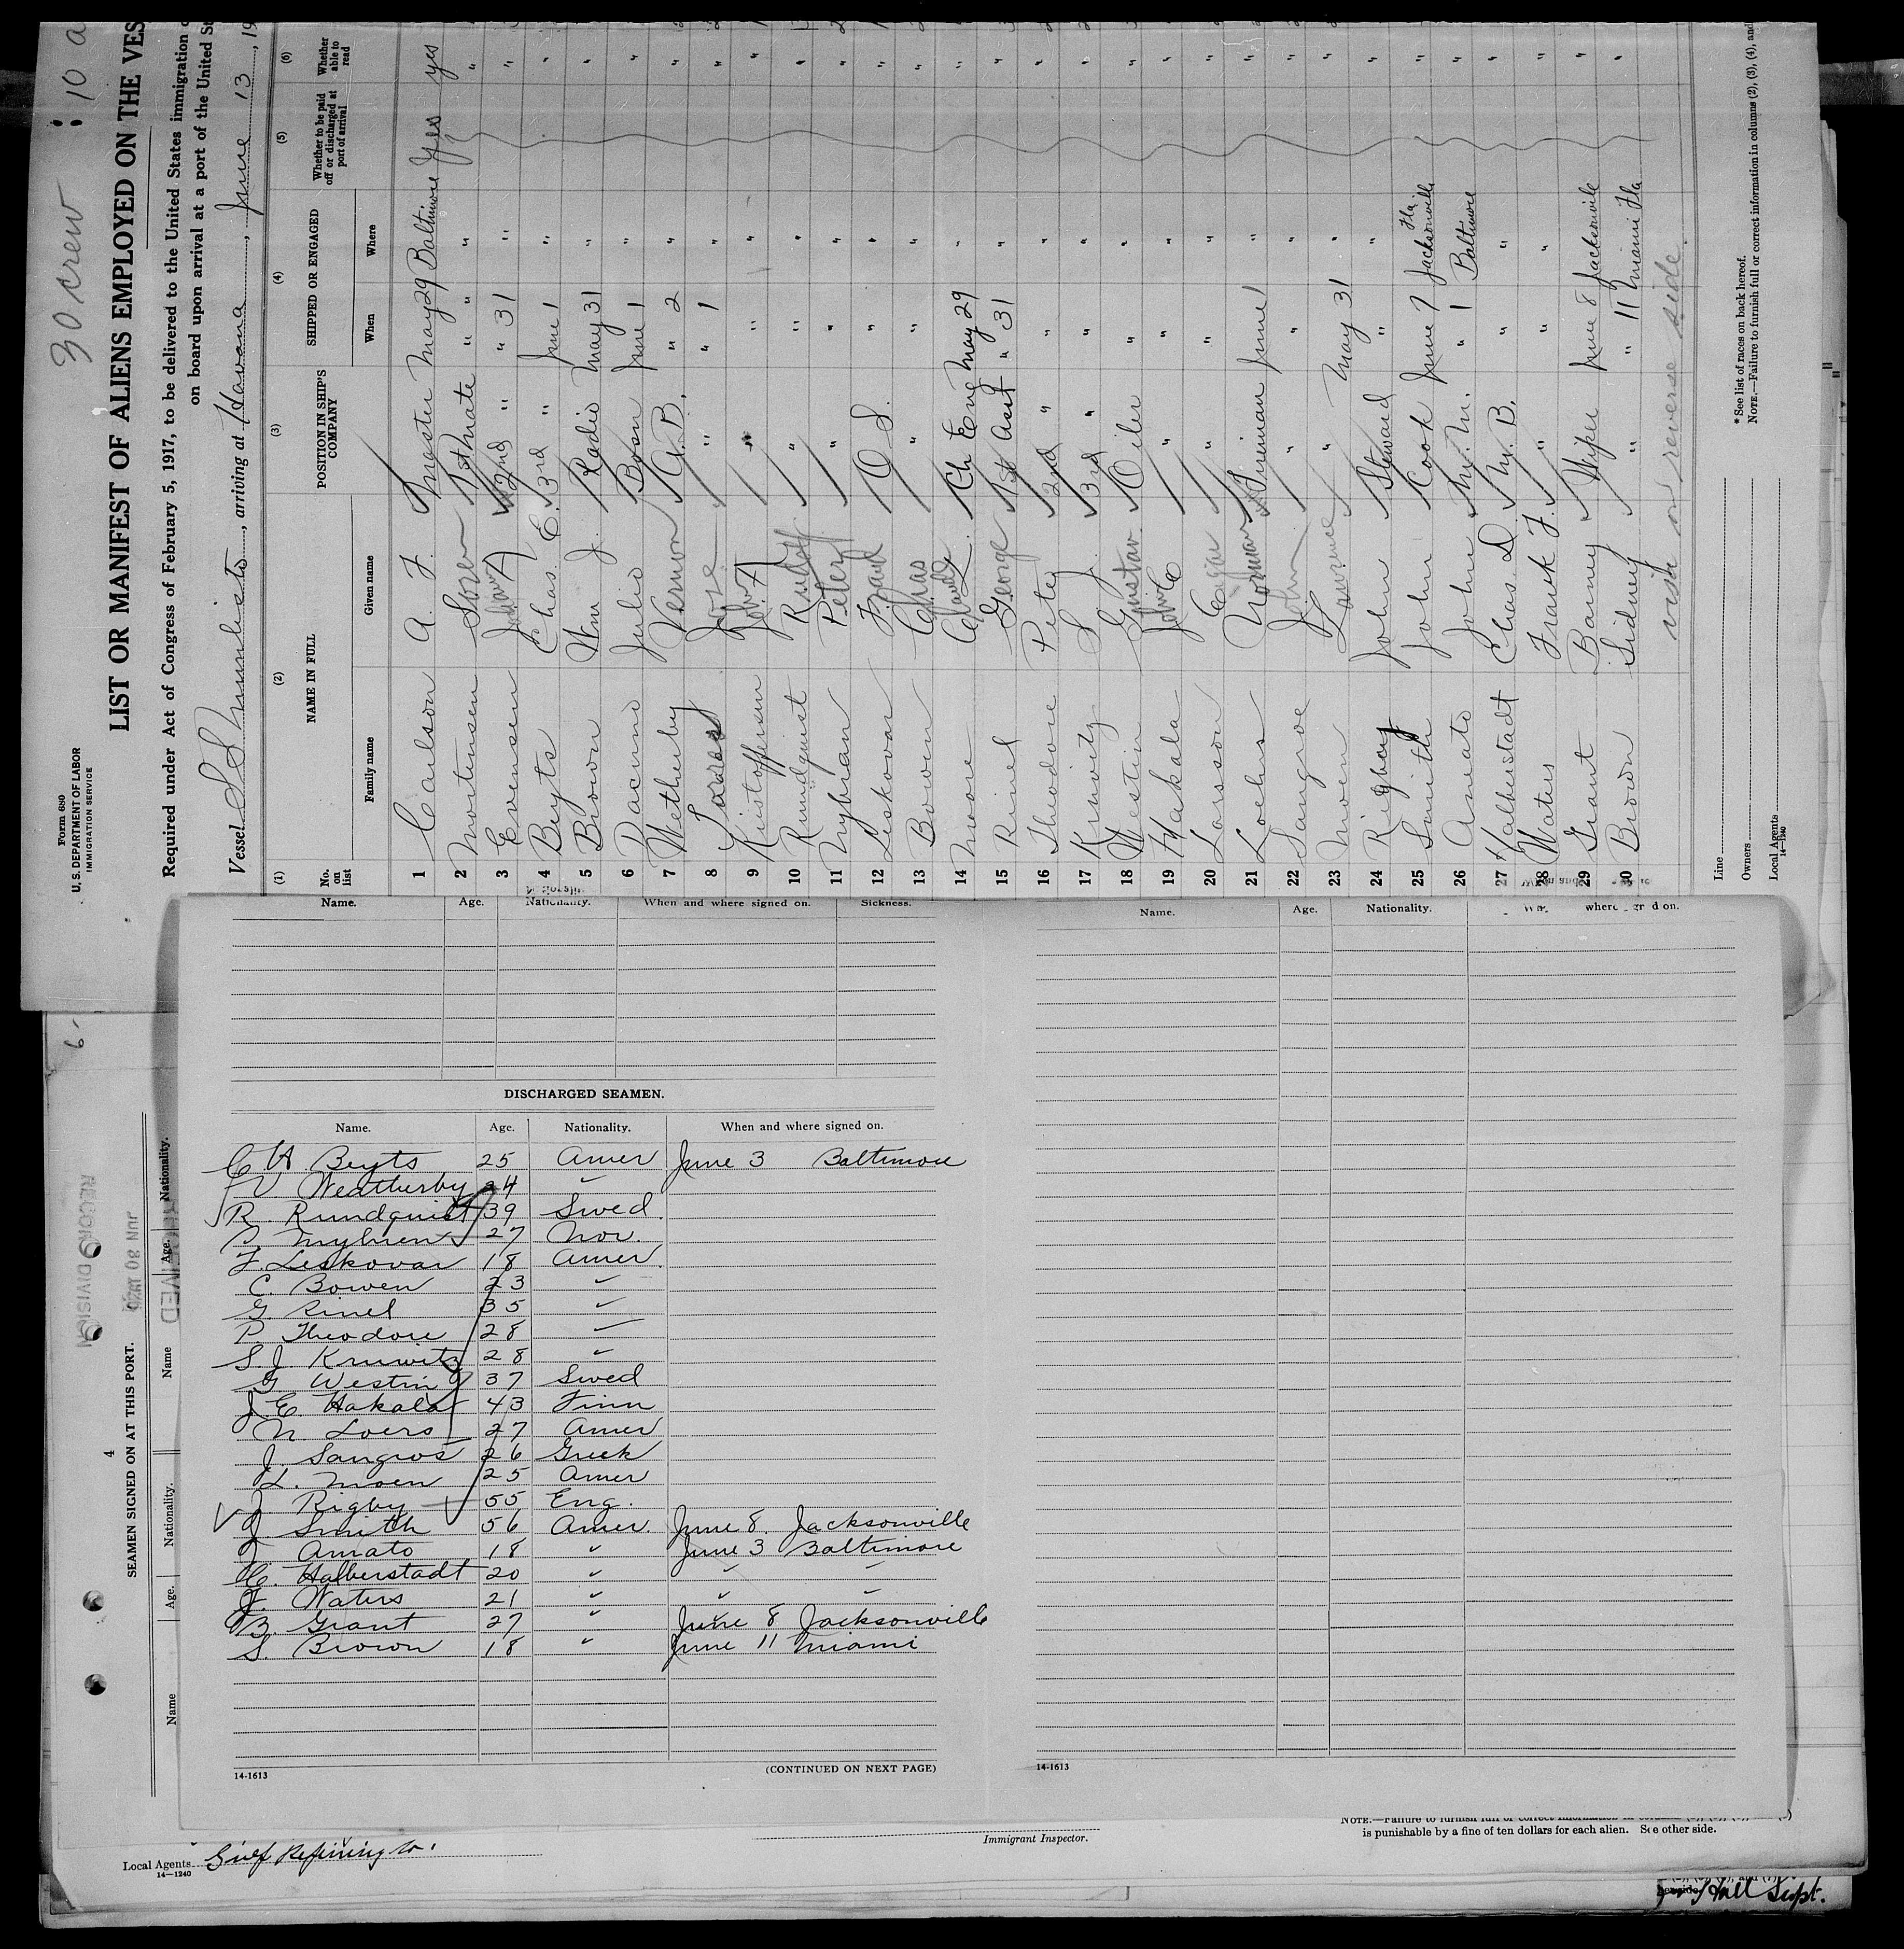 30 crew : 10 a
Form 680
U. S. DEPARTMENT OF LABOR
IMMIGRATION SERVICE
LIST OR MANIFEST OF ALIENS EMPLOYED ON THE VES
Required under Act of Congress of February 5, 1917, to be delivered to the United States immigration
on board upon arrival at a port of the United St
Vessel SS Munlisto, arriving at Havana, June 13, 19
(1) (2) (3) (4) (5) (6)
No. on list NAME IN FULL POSITION IN SHIP'S COMPANY SHIPPED OR ENGAGED Whether to be paid off or discharged at port of arrival Whether able to read
Family name Given name When Where
1 Carlson A. F. Master May 29 Baltimore Yes yes
2 Mortensen Soren 1st Mate " " " "
3 Evensen A 2nd " " 31 " "
4 Beyts Chas. E. 3rd " June 1 " "
5 Brown Wm J. Radio May 31 " "
6 Pacino Julio Bosn June 1 " "
7 Wetherby Vernon A.B. " 2 " "
8 Jose " " 1 " "
9 Kristoffersen John A " " " "
10 Rundquist Rudolf " " " "
11 Nyhran Peter " " " "
12 Leskovar Frand O S. " " "
13 Bowen Chas " " " "
14 Moore Claude L. Ch Eng May 29 " "
15 Rinel George 1st Asst " 31 " "
16 Theodore Pete 2nd " " " "
17 Kruvitz S J. 3rd " " " "
18 Westin Gustav Oiler " " "
19 Hakala John E " " " "
20 Larsson " " " "
21 Loehrs Norman Fireman June 1 " "
22 Sangroe John " " " "
23 Moen Lawrence " May 31 " "
24 Rigbey John Steward " " "
25 Smith John Cook June 7 Jacksonville Fla. "
26 Amato John M.M. " 1 Baltimore "
27 Halberstadt Chas D. M.B. " " "
28 Waters Frank F. " " " "
29 Grant Barney Wiper June 8 Jacksonville "
30 Brown Sidney " " 11 Miami Fla "
visa on reverse side.
Line
Owners
Local Agents
14—1240
* See list of races on back hereof.
NOTE.—Failure to furnish full or correct information in columns (2), (3), (4), and
Name. Age. Nationality. When and where signed on. Sickness.
DISCHARGED SEAMEN.
Name. Age. Nationality. When and where signed on.
C H. Beyts 25 Amer June 3 Baltimore
V. Weatherby 24 "
R. Rundquist 39 Swed.
P. Myhren 27 Nor.
F. Leskovar 18 Amer.
C. Bowen 23 "
G. Rinel 35 "
P. Theodore 28 "
S. J. Kruwitz 28 "
G. Westin 37 Swed
J. E. Hakala 43 Finn
N. Loers 27 Amer
J. Sangros 26 Greek
L. Moen 25 Amer
J Rigby 55 Eng.
J Smith 56 Amer. June 8. Jacksonville
J Amato 18 " June 3 Baltimore
C. Halberstadt 20 " " "
F. Waters 21 " " "
B. Grant 27 " June 8 Jacksonville
S. Brown 18 " June 11 Miami
14-1613 (CONTINUED ON NEXT PAGE)
Name. Age. Nationality.
14-1613
4
SEAMEN SIGNED ON AT THIS PORT.
Name Age. Nationality. Name Age. Nationality.
RECORDS DIVISION
JUN 30
RECEIVED
Local Agents Gulf Refining Co.
14—1240
Immigrant Inspector.
NOTE.—Failure to furnish full or correct information in columns
is punishable by a fine of ten dollars for each alien. See other side.
Hall Supt.